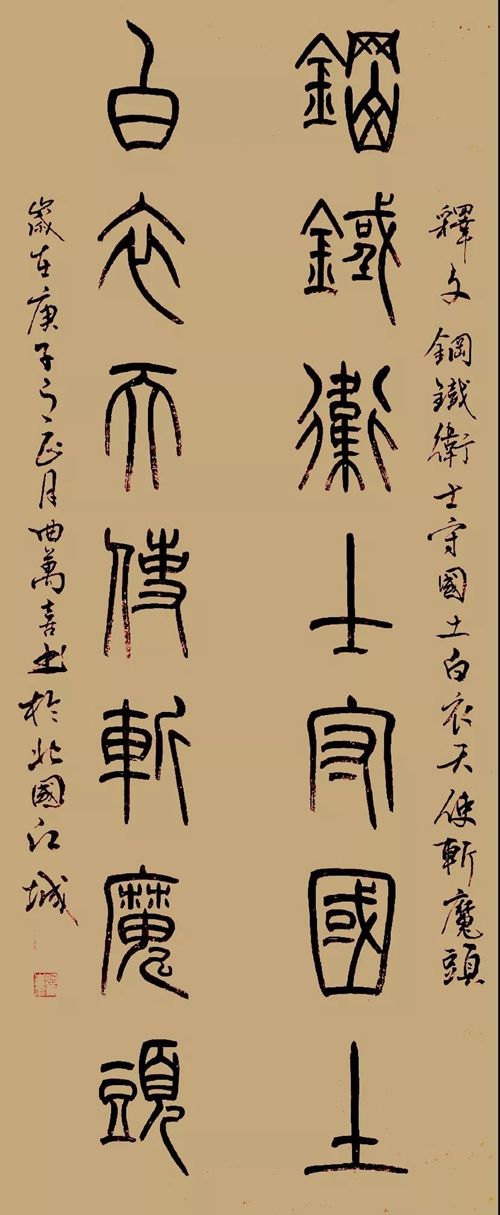 釋文 鋼鐵衛士守國土白衣天使斬魔頭
鋼鐵衛士守國土
白衣天使斬魔頭
歲在庚子之正月曲萬喜書於北國江城